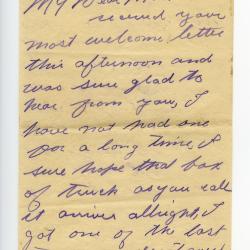 My Dear
recived your
most welcome letter
this afternoon and
was sure glad to
hear from you, I
have not had one
for a long time, I
sure hope that box
of truck as you call
it arrives allright, I
got one of the last